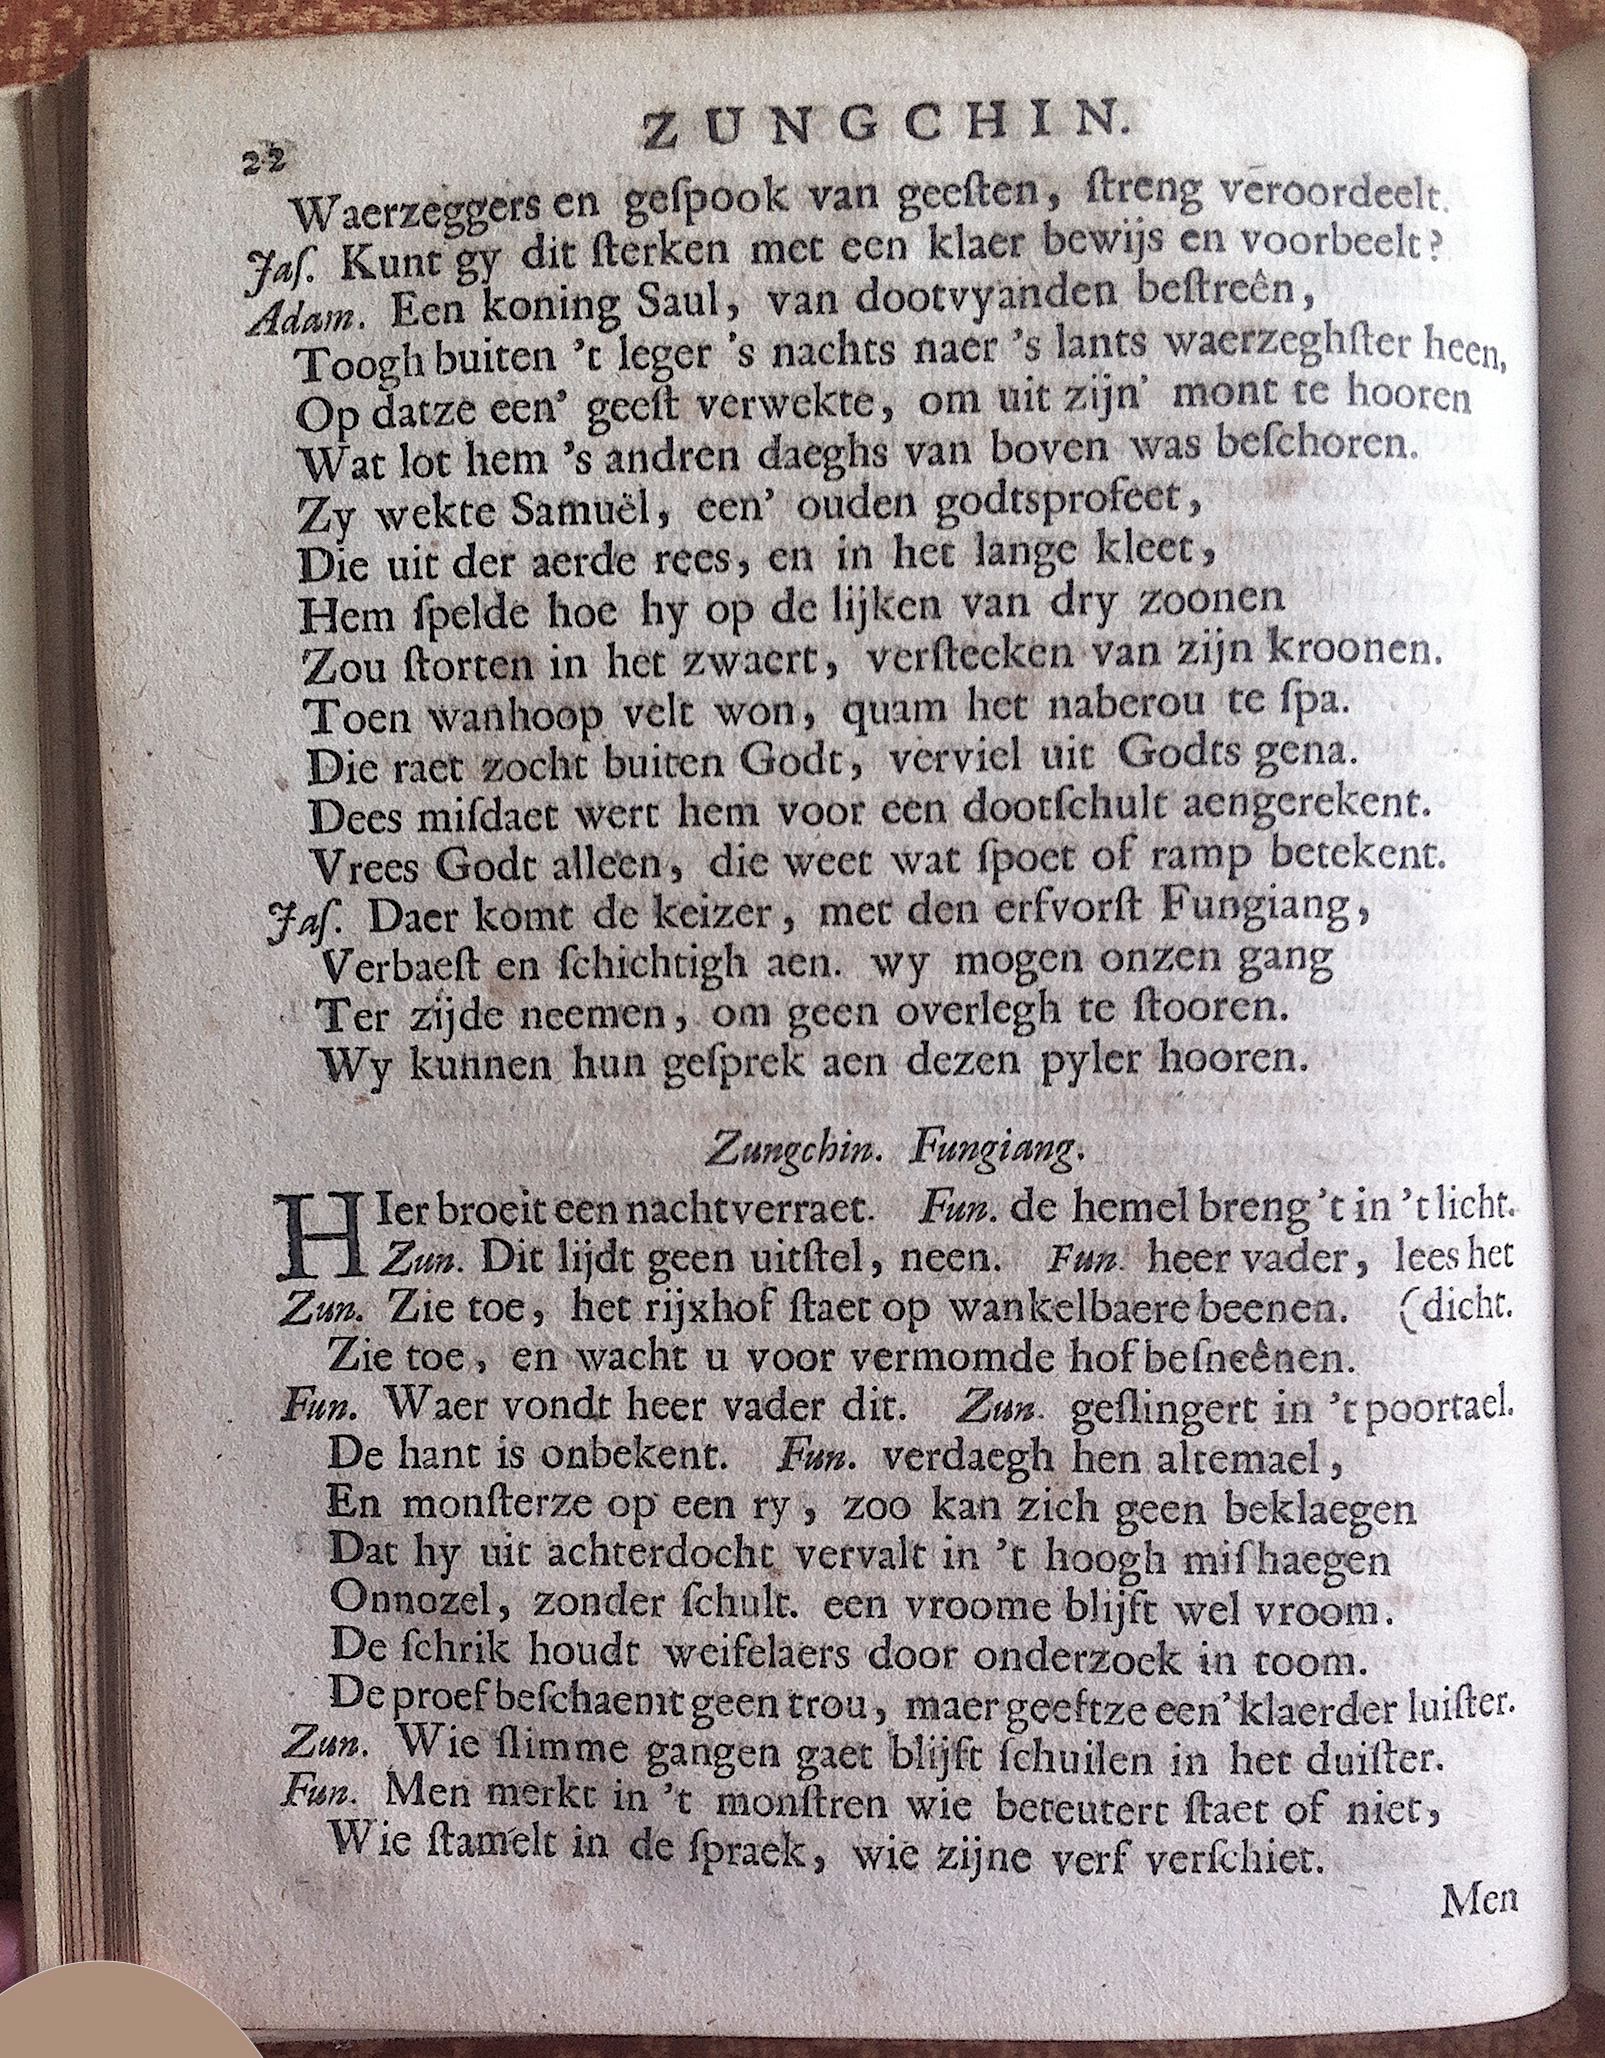 22
ZUNGCHIN.
Waerzeggers en geſpook van geeſten, ſtreng veroordeelt.
Jaſ. Kunt gy dit ſterken met een klaer bewijs en voorbeelt?
Adam. Een koning Saul, van dootvyanden beſtreên,
Toogh buiten 't leger 's nachts naer 's lants waerzeghſter heen,
Op datze een' geeſt verwekte, om uit zijn' mont te hooren
Wat lot hem 's andren daeghs van boven was beſchoren.
Zy wekte Samuël, een' ouden godtsprofeet,
Die uit der aerde rees, en in het lange kleet,
Hem ſpelde hoe hy op de lijken van dry zoonen
Zou ſtorten in het zwaert, verſteeken van zijn kroonen.
Toen wanhoop velt won, quam het naberou te ſpa.
Die raet zocht buiten Godt, verviel uit Godts gena.
Dees miſdaet wert hem voor een dootſchult aengerekent.
Vrees Godt alleen, die weet wat ſpoet of ramp betekent.
Jaſ. Daer komt de keizer, met den erfvorſt Fungiang,
Verbaeſt en ſchichtigh aen. wy mogen onzen gang
Ter zijde neemen, om geen overlegh te ſtooren.
Wy kunnen hun geſprek aen dezen pyler hooren.
Zungchin. Fungiang.
HIer broeit een nachtverraet. Fun. de hemel breng 't in 't licht.
Zun. Dit lijdt geen uitſtel, neen. Fun. heer vader, lees het
Zun. Zie toe, het rijxhof ſtaet op wankelbaere beenen. (dicht.
Zie toe, en wacht u voor vermomde hofbeſneênen.
Fun. Waer vondt heer vader dit. Zun. geſlingert in 't poortael.
De hant is onbekent. Fun. verdaegh hen altemael,
En monſterze op een ry, zoo kan zich geen beklaegen
Dat hy uit achterdocht vervalt in 't hoogh miſhaegen
Onnozel, zonder ſchult. een vroome blijft wel vroom.
De ſchrik houdt weifelaers door onderzoek in toom.
De proef beſchaemt geen trou, maer geeftze een' klaerder luiſter.
Zun. Wie ſlimme gangen gaet blijft ſchuilen in het duiſter.
Fun. Men merkt in 't monſtren wie beteutert ſtaet of niet,
Wie ſtamelt in de ſpraek, wie zijne verf verſchiet.
Men